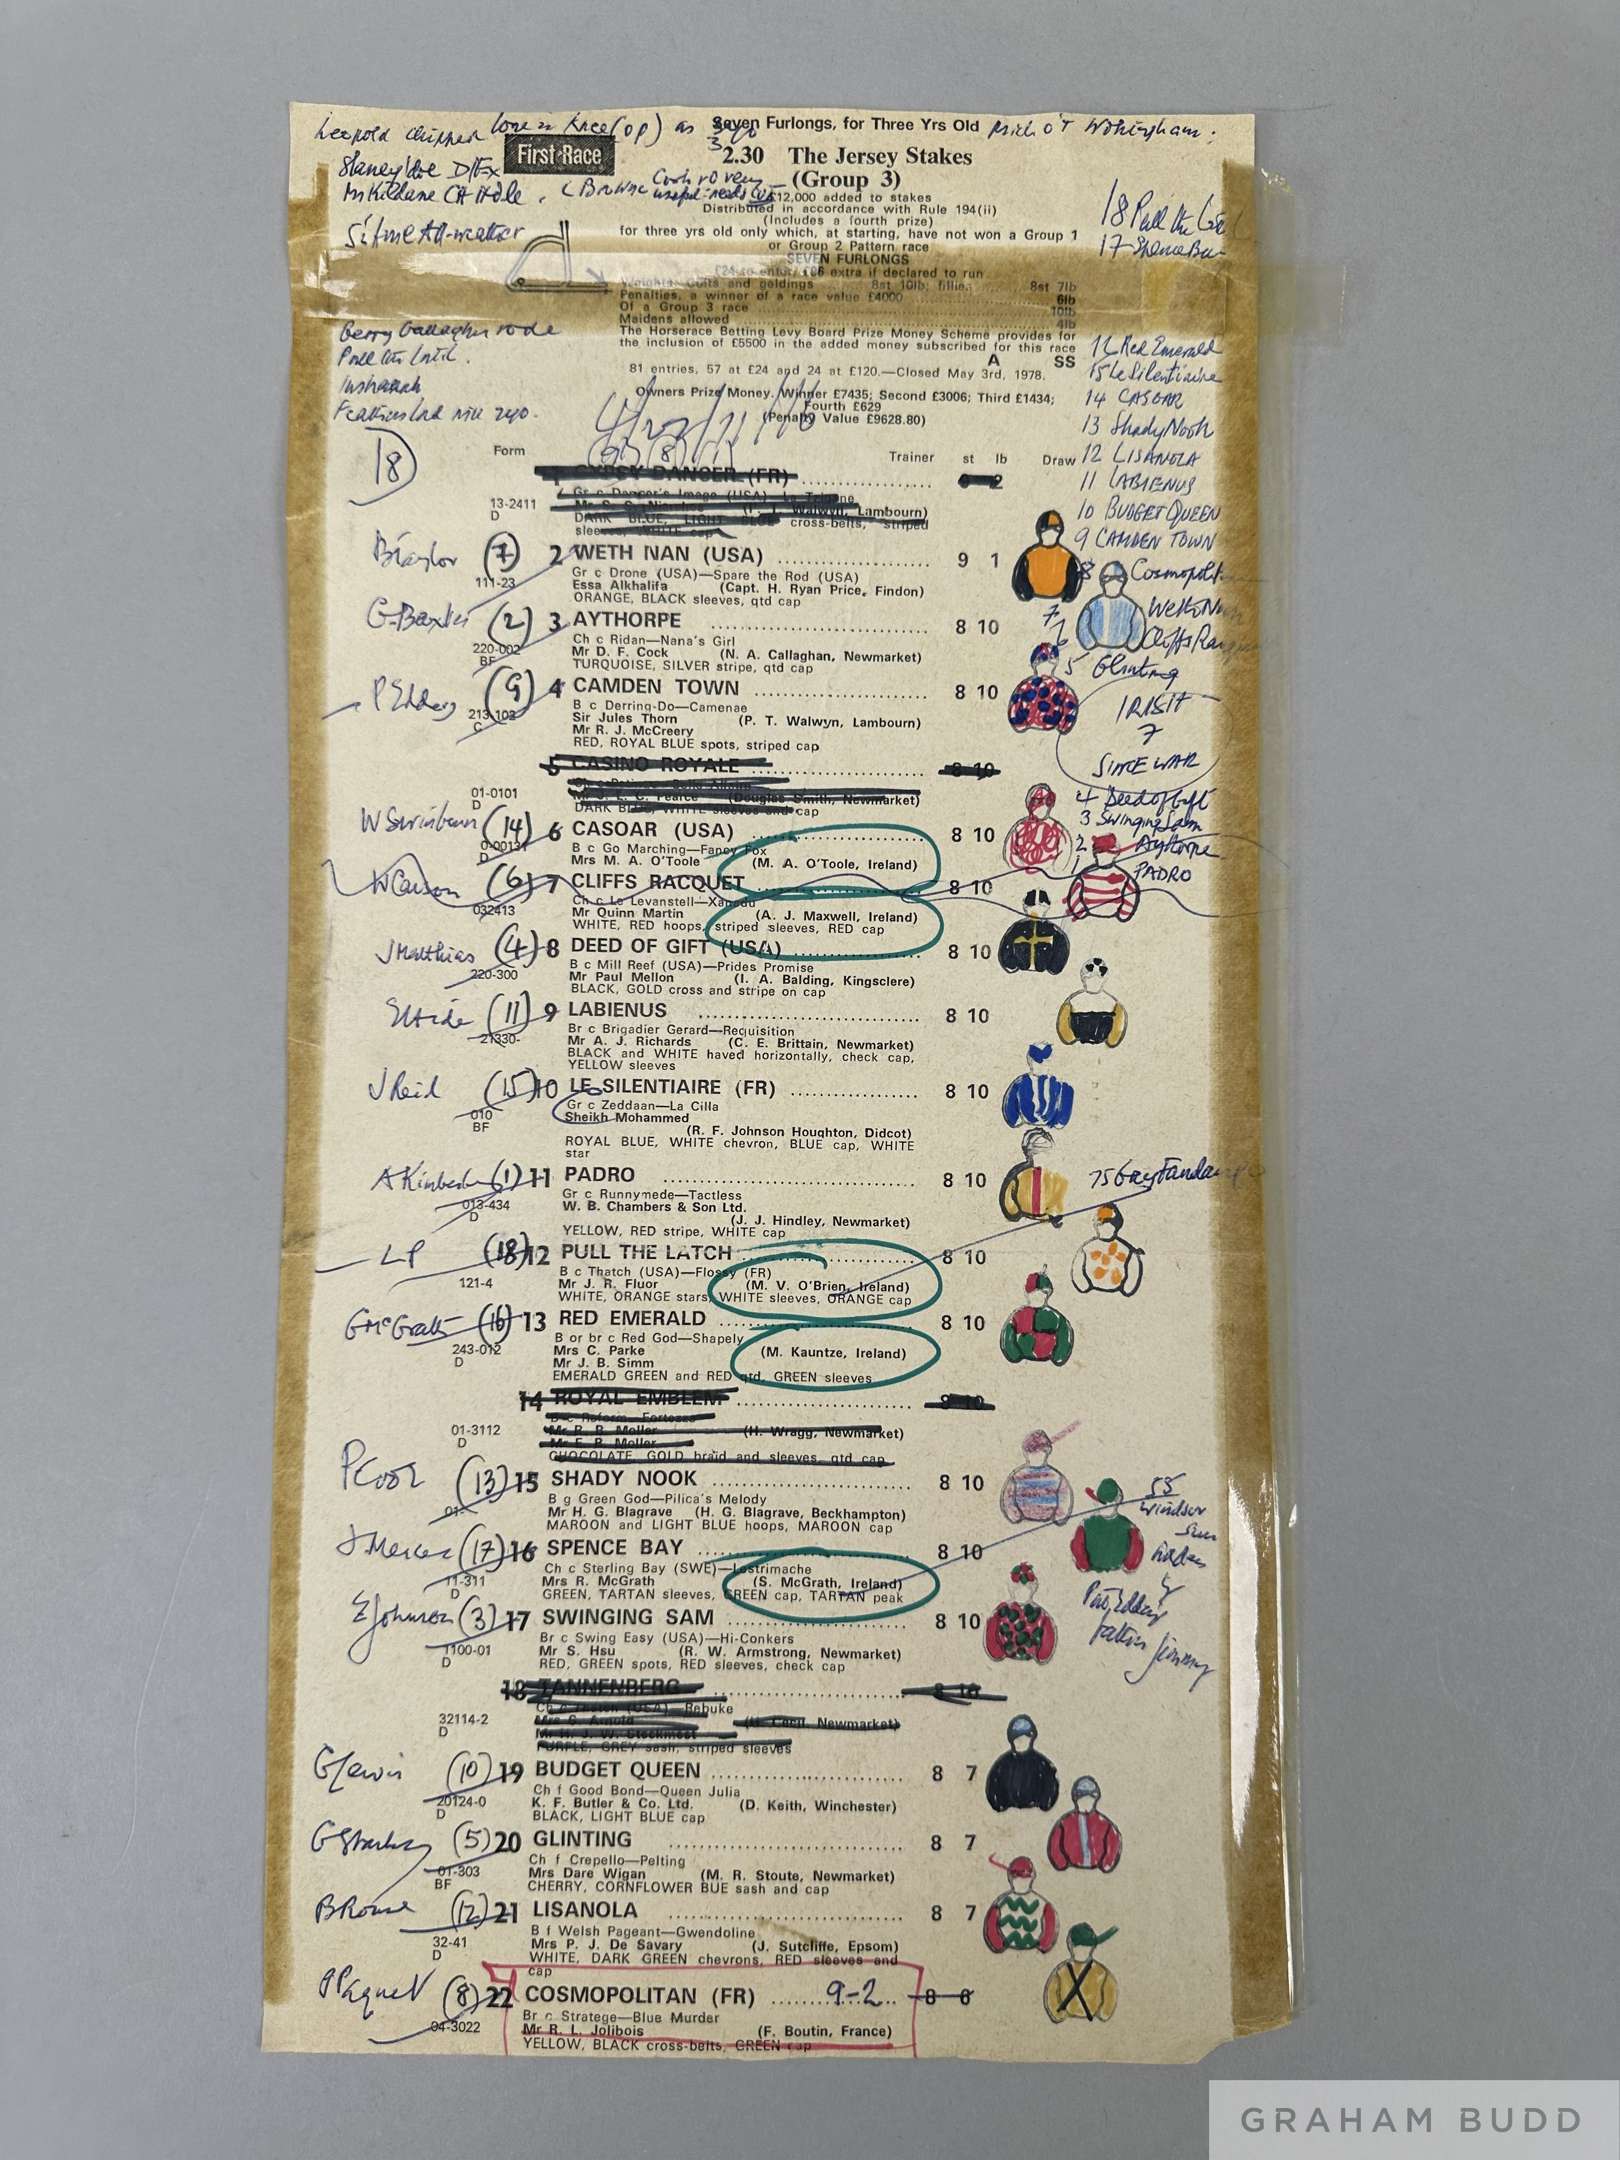 Leopold chipped bone in knee (op) as 3 yo
Seven Furlongs, for Three Yrs Old
First Race
2.30 The Jersey Stakes
(Group 3)
£12,000 added to stakes
Distributed in accordance with Rule 194(ii)
(Includes a fourth prize)
for three yrs old only which, at starting, have not won a Group 1
or Group 2 Pattern race
SEVEN FURLONGS
£24 to enter, £96 extra if declared to run
Weights: Colts and geldings 8st 10lb; fillies 8st 7lb
Penalties, a winner of a race value £4000 6lb
Of a Group 3 race 10lb
Maidens allowed 4lb
The Horserace Betting Levy Board Prize Money Scheme provides for
the inclusion of £5500 in the added money subscribed for this race
A SS
81 entries, 57 at £24 and 24 at £120.—Closed May 3rd, 1978.
Owners Prize Money. Winner £7435; Second £3006; Third £1434;
Fourth £629
(Penalty Value £9628.80)
18 Pull the Latch
17 Spence Bay
Gerry Gallagher rode
Pull the Latch.
18
Red Emerald
15 Le Silentiaire
14 CASOAR
13 Shady Nook
12 LISANOLA
11 LABIENUS
10 BUDGET QUEEN
9 CAMDEN TOWN
8 Cosmopolitan
7 Weth Nan
6 Cliffs Racquet
5 Glinting
IRISH
7
SINCE WAR
4 Deed of Gift
3 Swinging Sam
2 Aythorpe
1 PADRO
Form Trainer st lb Draw
1 GYPSY DANCER (FR)
13-2411
D
Gr c Dancer's Image (USA)—La
Walwyn, Lambourn)
DARK BLUE, LIGHT BLUE cross-belts, striped
sleeves, WHITE cap
B Taylor (7) 2 WETH NAN (USA) 9 1
111-23
Gr c Drone (USA)—Spare the Rod (USA)
Essa Alkhalifa (Capt. H. Ryan Price, Findon)
ORANGE, BLACK sleeves, qtd cap
G Baxter (2) 3 AYTHORPE 8 10
220-002
BF
Ch c Ridan—Nana's Girl
Mr D. F. Cock (N. A. Callaghan, Newmarket)
TURQUOISE, SILVER stripe, qtd cap
P Eddery (9) 4 CAMDEN TOWN 8 10
213-102
C
B c Derring-Do—Camenae
Sir Jules Thorn (P. T. Walwyn, Lambourn)
Mr R. J. McCreery
RED, ROYAL BLUE spots, striped cap
5 CASINO ROYALE 8 10
01-0101
D
(Douglas Smith, Newmarket)
DARK BLUE, WHITE sleeves and cap
W Swinburn (14) 6 CASOAR (USA) 8 10
0-00131
D
B c Go Marching—Fancy Fox
Mrs M. A. O'Toole (M. A. O'Toole, Ireland)
W Carson (6) 7 CLIFFS RACQUET 8 10
032413
Ch c Le Levanstell—Xanadu
Mr Quinn Martin (A. J. Maxwell, Ireland)
WHITE, RED hoops, striped sleeves, RED cap
J Matthias (4) 8 DEED OF GIFT (USA) 8 10
220-300
B c Mill Reef (USA)—Prides Promise
Mr Paul Mellon (I. A. Balding, Kingsclere)
BLACK, GOLD cross and stripe on cap
E Hide (11) 9 LABIENUS 8 10
21330-
Br c Brigadier Gerard—Requisition
Mr A. J. Richards (C. E. Brittain, Newmarket)
BLACK and WHITE haved horizontally, check cap,
YELLOW sleeves
J Reid (15) 10 LE SILENTIAIRE (FR) 8 10
010
BF
Gr c Zeddaan—La Cilla
Sheikh Mohammed
(R. F. Johnson Houghton, Didcot)
ROYAL BLUE, WHITE chevron, BLUE cap, WHITE
star
A Kimberley (1) 11 PADRO 8 10
013-434
D
Gr c Runnymede—Tactless
W. B. Chambers & Son Ltd.
(J. J. Hindley, Newmarket)
YELLOW, RED stripe, WHITE cap
75 Gay Fandango
LP (18) 12 PULL THE LATCH 8 10
121-4
B c Thatch (USA)—Flossy (FR)
Mr J. R. Fluor (M. V. O'Brien, Ireland)
WHITE, ORANGE stars, WHITE sleeves, ORANGE cap
G McGrath (16) 13 RED EMERALD 8 10
243-012
D
B or br c Red God—Shapely
Mrs C. Parke (M. Kauntze, Ireland)
Mr J. B. Simm
EMERALD GREEN and RED qtd, GREEN sleeves
14 ROYAL EMBLEM 8 10
01-3112
D
B c Reform—Fortezza
Mr R. B. Moller (H. Wragg, Newmarket)
Mr E. B. Moller
CHOCOLATE, GOLD braid and sleeves, qtd cap
P Cook (13) 15 SHADY NOOK 8 10
01-
B g Green God—Pilica's Melody
Mr H. G. Blagrave (H. G. Blagrave, Beckhampton)
MAROON and LIGHT BLUE hoops, MAROON cap
J Mercer (17) 16 SPENCE BAY 8 10
11-311
D
Ch c Sterling Bay (SWE)—Lastrimache
Mrs R. McGrath (S. McGrath, Ireland)
GREEN, TARTAN sleeves, GREEN cap, TARTAN peak
55
Windsor
Pat Eddery
father Jimmy
E Johnson (3) 17 SWINGING SAM 8 10
1100-01
D
Br c Swing Easy (USA)—Hi-Conkers
Mr S. Hsu (R. W. Armstrong, Newmarket)
RED, GREEN spots, RED sleeves, check cap
18 TANNENBERG 8 10
32114-2
D
(USA)—Rebuke
Mrs S. Arnold (H. Cecil, Newmarket)
PURPLE, GREY sash, striped sleeves
G Lewis (10) 19 BUDGET QUEEN 8 7
20124-0
D
Ch f Good Bond—Queen Julia
K. F. Butler & Co. Ltd. (D. Keith, Winchester)
BLACK, LIGHT BLUE cap
G Starkey (5) 20 GLINTING 8 7
01-303
BF
Ch f Crepello—Pelting
Mrs Dare Wigan (M. R. Stoute, Newmarket)
CHERRY, CORNFLOWER BUE sash and cap
B Rouse (12) 21 LISANOLA 8 7
32-41
D
B f Welsh Pageant—Gwendoline
Mrs P. J. De Savary (J. Sutcliffe, Epsom)
WHITE, DARK GREEN chevrons, RED sleeves and
cap
P Paquet (8) 22 COSMOPOLITAN (FR) 9-2 8 6
04-3022
Br c Stratege—Blue Murder
Mr R. L. Jolibois (F. Boutin, France)
YELLOW, BLACK cross-belts, GREEN cap
GRAHAM BUDD